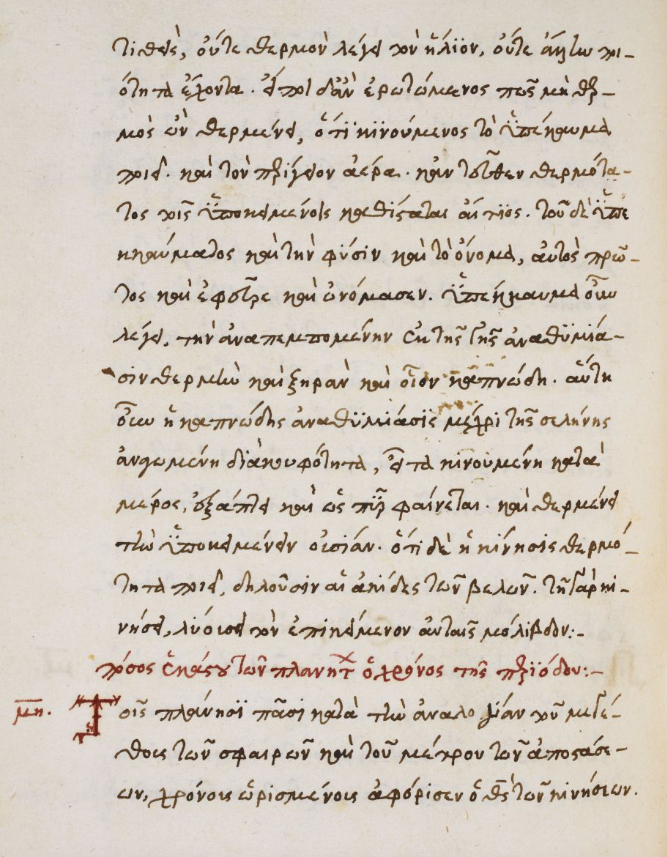 τίθει, οὔτε θερμὸν λέγει τὸν ἥλιον, οὔτε
ότητα ἔχοντα. εἴποι δ' ἂν ἐρωτώμενος πῶς μὴ θερ-
μὸς ὢν θερμαίνει, ὅτι κινούμενος τὸ ὑπέκκαυμα
ποιεῖ. καὶ τὸν ἀέρα. κἀντεῦθεν θερμότη-
τος τοῖς ὑποκειμένοις καθίσταται αἴτιος. τοῦ δὲ ὑπε
κκαύματος καὶ τὴν φύσιν καὶ τὸ ὄνομα, αὐτὸς πρῶ-
τος καὶ ἐφεῦρε καὶ ὠνόμασεν. ὑπέκκαυμα οὖν
λέγει, τὴν ἀναπεμπομένην ἐκ τῆς γῆς ἀναθυμία-
σιν θερμὴν καὶ ξηρὰν καὶ οἷον καπνώδη. αὕτη
οὖν ἡ καπνώδης ἀναθυμίασις μέχρι τῆς σελήνης
ἀναγομένη διὰ κουφότητα, εἶτα κινουμένη κατὰ
μέρος, ἐξάπτει καὶ ὡς πῦρ φαίνεται. καὶ θερμαίνει
τὴν ὑποκειμένην οὐσίαν. ὅτι δὲ ἡ κίνησις θερμό-
τητα ποιεῖ, δηλοῦσιν αἱ ἀκίδες τῶν βελῶν. τῇ γὰρ κι-
νήσει, λύουσι τὸν ἐπικείμενον αὐταῖς μόλιβδον:-
πόσος ἑκάστου τῶν πλανητ ὁ χρόνος τῆς περιόδου:-
μη. Τοῖς πλάνησι πᾶσι κατὰ τὴν ἀναλογίαν τοῦ μεγέ-
θους τῶν σφαιρῶν καὶ τοῦ μέτρου τῶν ἀποστάσε-
ων, χρόνοις ὡρισμένοις ἀφώρισεν ὁ θς τῶν κινήσεων.